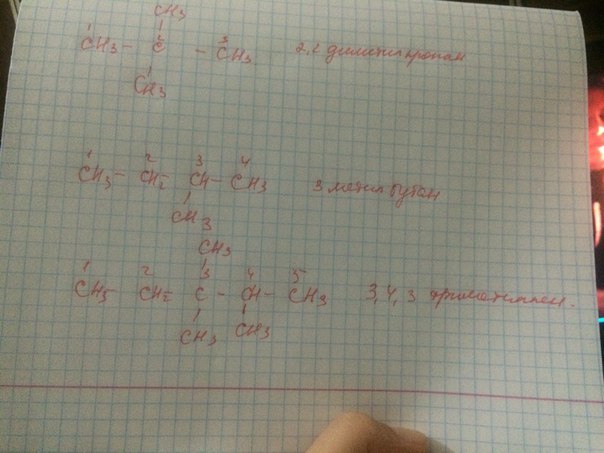 CH3
1 2 3
CH3 – C – CH3 2,2 диметилпропан
CH3
1 2 3 4
CH3 – CH2 – CH – CH3 3 метил бутан
CH3
CH3
1 2 3 4 5
CH3 – CH2 – C – CH – CH3 3,4,3
CH3 CH3